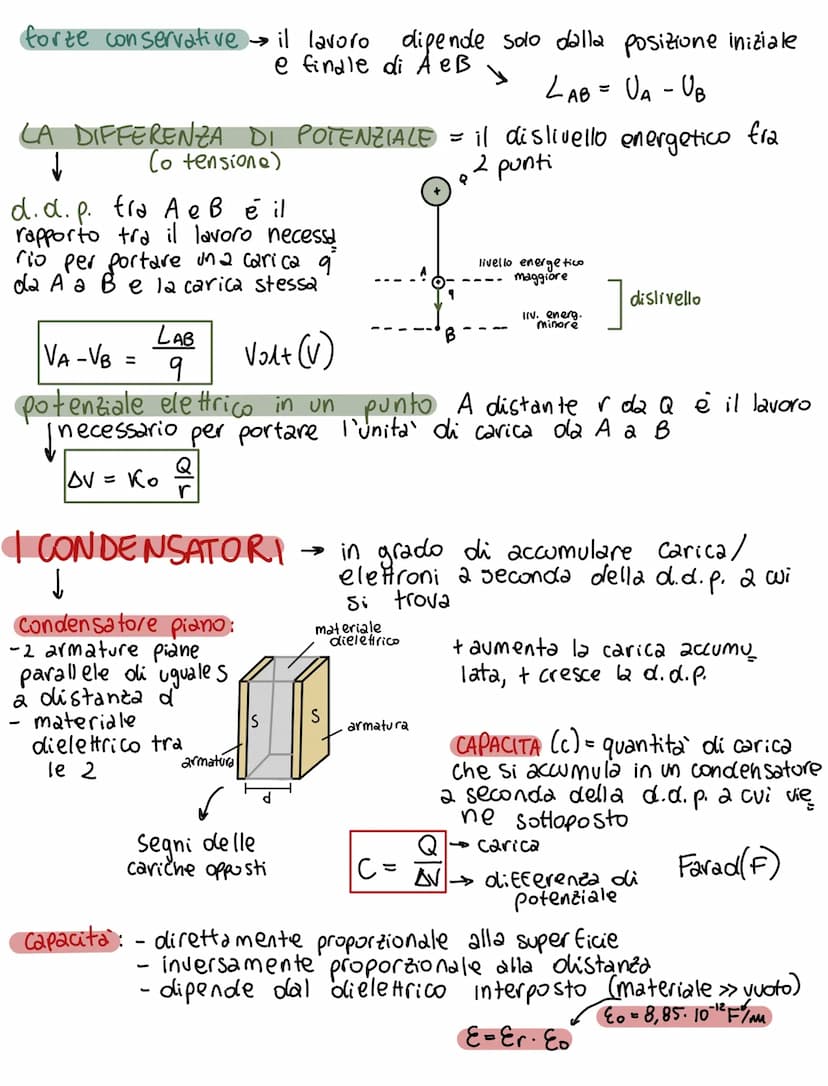 forze conservative → il lavoro dipende solo dalla posizione iniziale
e finale di A e B ↘
L AB = U A - U B
LA DIFFERENZA DI POTENZIALE = il dislivello energetico tra
(o tensione)
2 punti
d.d.p. tra A e B é il
rapporto tra il lavoro necessa
rio per portare una carica q
da A a B e la carica stessa
Q
+
A
q
B
livello energetico
maggiore
liv. energ.
minore
dislivello
V A - V B = L AB / q
Volt (V)
potenziale elettrico in un punto A distante r da Q é il lavoro
necessario per portare l'unita` di carica da A a B
ΔV = K o Q / r
I CONDENSATORI → in grado di accumulare carica/
elettroni a seconda della d.d.p. a cui
si trova
condensatore piano:
- 2 armature piane
parallele di uguale S
a distanza d
- materiale
dielettrico tra
le 2
materiale
dielettrico
S
S
armatura
armatura
d
Segni delle
cariche opposti
+ aumenta la carica accumu
lata, + cresce la d.d.p.
CAPACITA (C) = quantita` di carica
che si accumula in un condensatore
a seconda della d.d.p. a cui vie
ne sottoposto
C = Q / ΔV
→ carica
→ differenza di
potenziale
Farad (F)
capacita`: - direttamente proporzionale alla superficie
- inversamente proporzionale alla distanza
- dipende dal dielettrico interposto (materiale >> vuoto)
ε o = 8,85 · 10⁻¹² F/m
ε = ε r · ε o